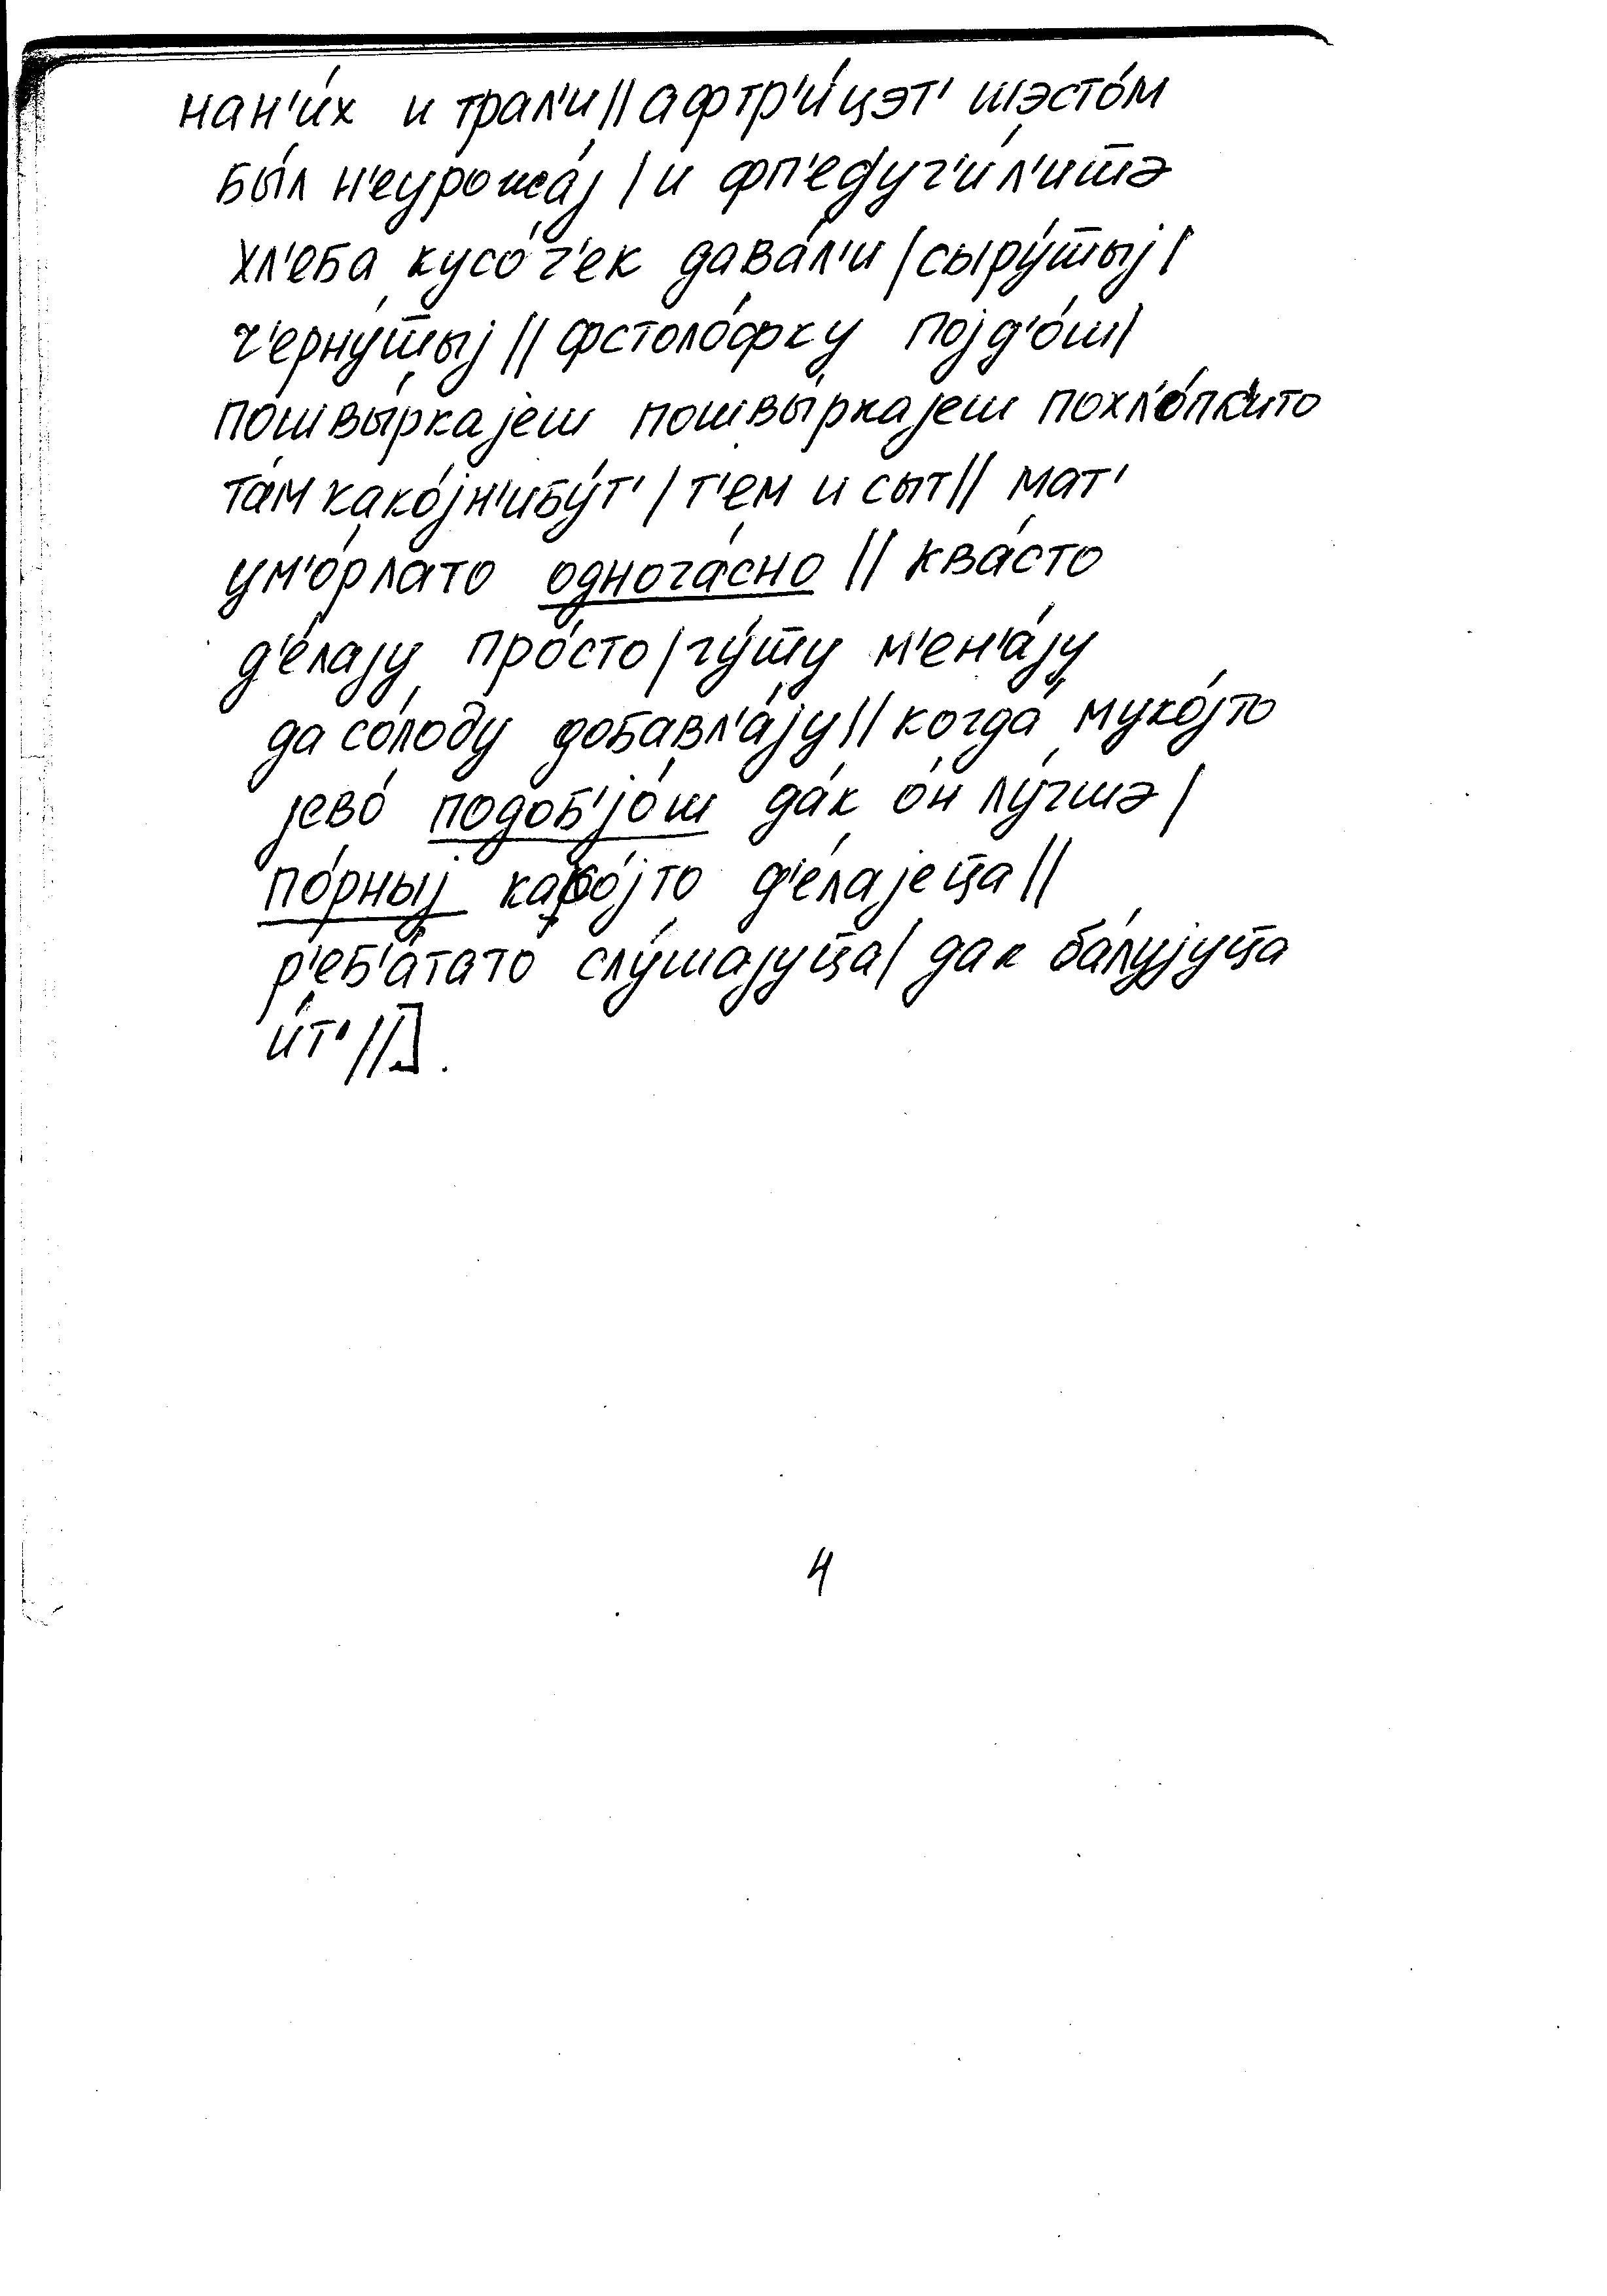 нан'и́х и трал'и || афтр'и́цэт' шэсто́м
бы́л н'еурожа́ј | и фп'едуч'и́л'ишэ
хл'еба кусо́ч'ек дава́л'и | сыру́шыј |
ч'ерну́шыј || фстоло́фку појд'о́ш |
пошвы́ркајеш пошвы́ркајеш похл'о́пк'ито
та́м како́јн'ибу́т' | т'ем и сыт || мат'
ум'о́рлато одноча́сно || ква́сто
д'е́лају про́сто | гу́шу м'ен'а́ју
да со́лоду добавл'а́ју || когда́ муко́јто
јево́ подоб'јо́ш да́к о́н лу́чшэ |
по́рныј како́јто д'е́лајеца ||
р'еб'а́тато слу́шајуца | дак ба́лујуца
и́т' ||].
4